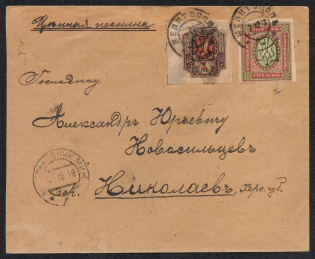 Цѣнная посылка
МЕЛИТОПОЛЬ
Господину
Александръ Юрьевичу
Новосильцевъ
гор. Николаевъ, Херс. губ.